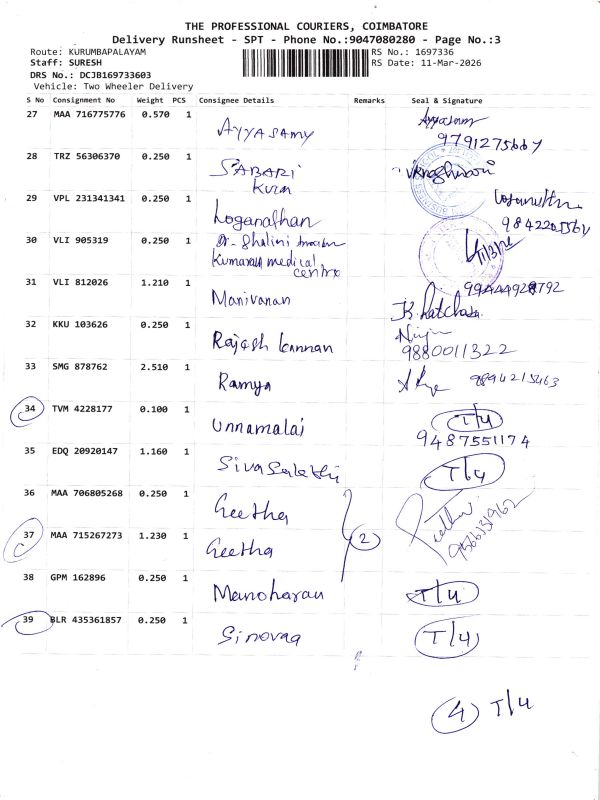 THE PROFESSIONAL COURIERS, COIMBATORE
Delivery Runsheet - SPT - Phone No.:9047080280 - Page No.:3
Route: KURUMBAPALAYAM RS No.: 1697336
Staff: SURESH RS Date: 11-Mar-2026
DRS No.: DCJB169733603
Vehicle: Two Wheeler Delivery
S No Consignment No Weight PCS Consignee Details Remarks Seal & Signature
27 MAA 716775776 0.570 1 AYYASAMY
28 TRZ 56306370 0.250 1 SABARI
29 VPL 231341341 0.250 1 Loganathan
30 VLI 905319 0.250 1 Dr- Shalini
Kumaran medical
centre
31 VLI 812026 1.210 1 Manivanan
32 KKU 103626 0.250 1 Rajesh kannan
9880011322
33 SMG 878762 2.510 1 Ramya
34 TVM 4228177 0.100 1 Unnamalai T/4
9487551174
35 EDQ 20920147 1.160 1 Sivasakthi T/4
36 MAA 706805268 0.250 1 Geetha
37 MAA 715267273 1.230 1 Geetha 2 9566131962
38 GPM 162896 0.250 1 Manoharan T/4
39 BLR 435361857 0.250 1 Sinovaa T/4
4 T/4